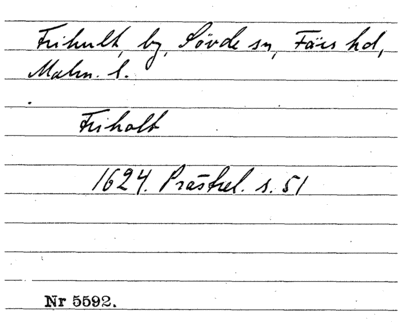 Frihult, by, Sövde sn, Färs hd,
Malm. l.
Friholt
1624. Prästrel. s. 51
Nr 5592.